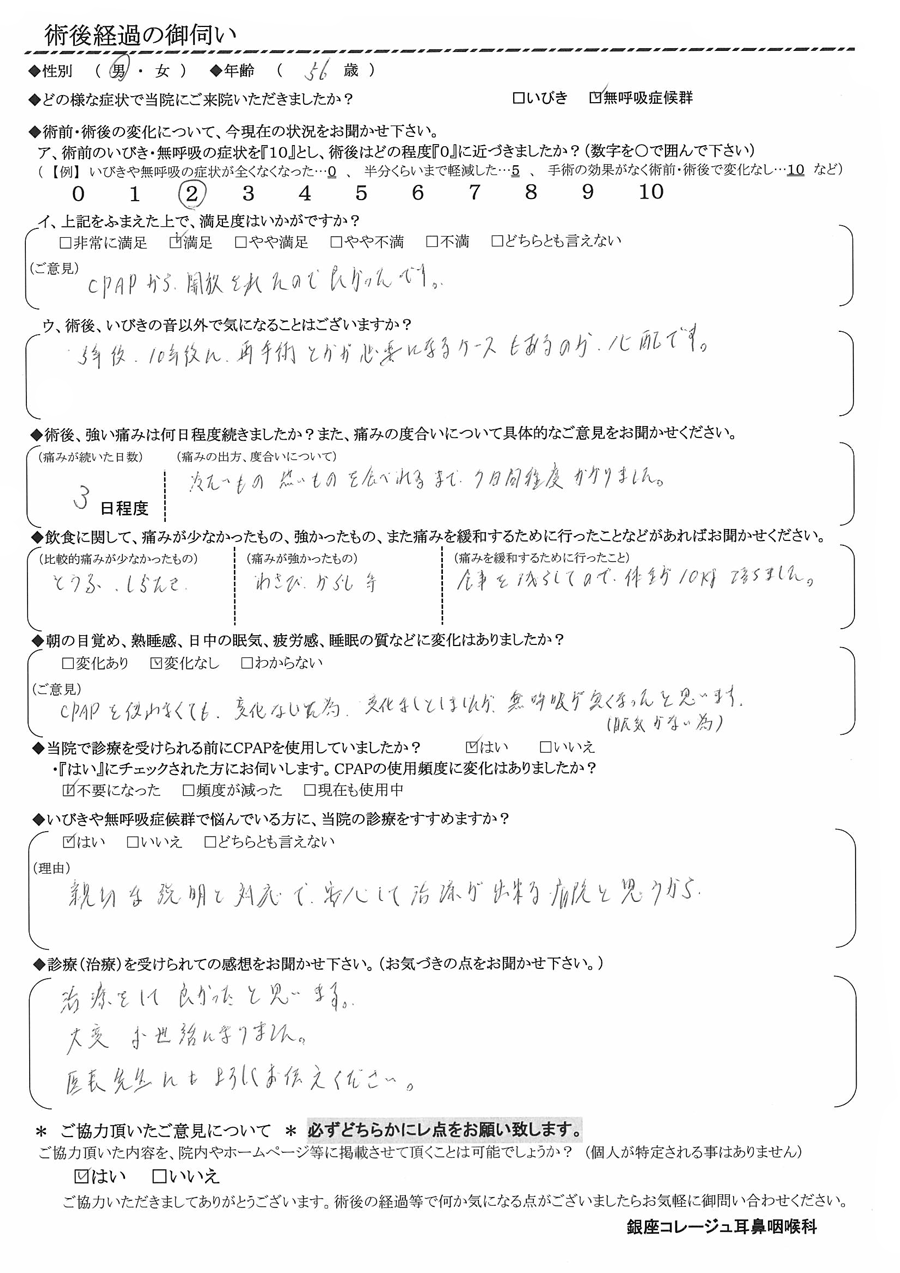 術後経過の御伺い
◆性別 （ 男 ・ 女 ） ◆年齢 （ 56 歳 ）
◆どの様な症状で当院にご来院いただきましたか？ □いびき ☑無呼吸症候群
◆術前・術後の変化について、今現在の状況をお聞かせ下さい。
ア、術前のいびき・無呼吸の症状を『10』とし、術後はどの程度『0』に近づきましたか？（数字を〇で囲んで下さい）
（【例】 いびきや無呼吸の症状が全くなくなった…0 、 半分くらいまで軽減した…5 、 手術の効果がなく術前・術後で変化なし…10 など）
0 1 2 3 4 5 6 7 8 9 10
イ、上記をふまえた上で、満足度はいかがですか？
□非常に満足 ☑満足 □やや満足 □やや不満 □不満 □どちらとも言えない
（ご意見）
CPAPから、開放されたので良かったです。
ウ、術後、いびきの音以外で気になることはございますか？
5年後、10年後に、再手術とかが必要になるケースもあるのか、心配です。
◆術後、強い痛みは何日程度続きましたか？また、痛みの度合いについて具体的なご意見をお聞かせください。
（痛みが続いた日数） （痛みの出方、度合いについて）
冷たいもの 熱いものを食べれるまで、9日間程度かかりました。
3 日程度
◆飲食に関して、痛みが少なかったもの、強かったもの、また痛みを緩和するために行ったことなどがあればお聞かせください。
（比較的痛みが少なかったもの） （痛みが強かったもの） （痛みを緩和するために行ったこと）
とうふ、しらたき わさび、からし等 食事を減らしてので、体重が10kg落ちました。
◆朝の目覚め、熟睡感、日中の眠気、疲労感、睡眠の質などに変化はありましたか？
□変化あり ☑変化なし □わからない
（ご意見）
CPAPを使わなくても、変化ない為、変化なしとしましたが、無呼吸が無くなったと思います。
（眠気がない為）
◆当院で診療を受けられる前にCPAPを使用していましたか？ ☑はい □いいえ
・『はい』にチェックされた方にお伺いします。CPAPの使用頻度に変化はありましたか？
☑不要になった □頻度が減った □現在も使用中
◆いびきや無呼吸症候群で悩んでいる方に、当院の診療をすすめますか？
☑はい □いいえ □どちらとも言えない
（理由）
親切な説明と対応で、安心して治療が出来る病院と思うから
◆診療（治療）を受けられての感想をお聞かせ下さい。（お気づきの点をお聞かせ下さい。）
治療をして良かったと思います。
大変お世話になりました。
医長先生にもよろしくお伝えください。
＊ ご協力頂いたご意見について ＊ 必ずどちらかにレ点をお願い致します。
ご協力頂いた内容を、院内やホームページ等に掲載させて頂くことは可能でしょうか？ （個人が特定される事はありません）
☑はい □いいえ
ご協力いただきましてありがとうございます。術後の経過等で何か気になる点がございましたらお気軽に御問い合わせください。
銀座コレージュ耳鼻咽喉科